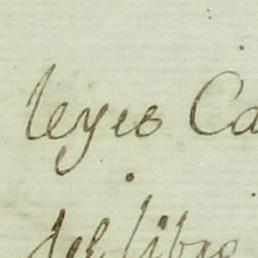 leyes Ca
del libro